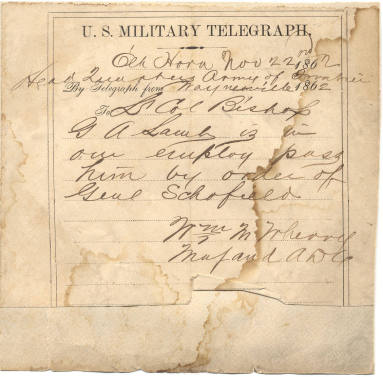 U. S. MILITARY TELEGRAPH,
Elk Horn Nov 22nd 1862
Head Quarters Army of Frontier
By Telegraph from Waynesville 1862
To Lt Col Bishop
G A Lamb is in
our employ pass
him by order of
Genl Schofield
Wm M Wherry
Maj and ADC